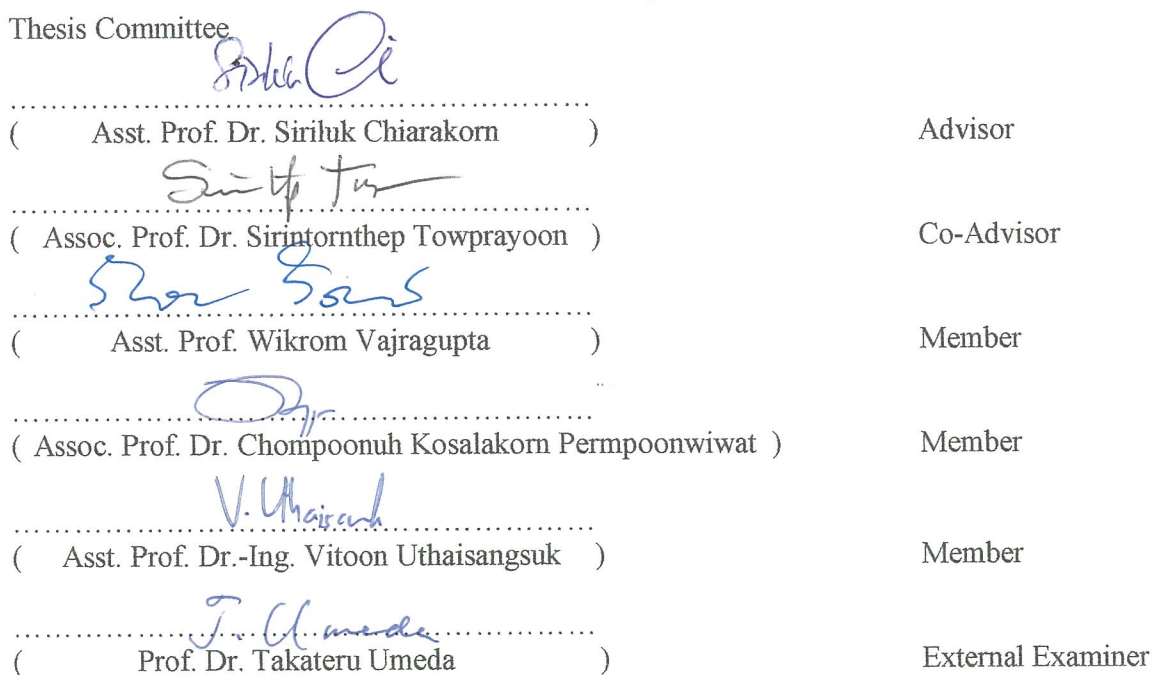 Thesis Committee
............................................................
( Asst. Prof. Dr. Siriluk Chiarakorn ) Advisor
............................................................
( Assoc. Prof. Dr. Sirintornthep Towprayoon ) Co-Advisor
............................................................
( Asst. Prof. Wikrom Vajragupta ) Member
............................................................
( Assoc. Prof. Dr. Chompoonuh Kosalakorn Permpoonwiwat ) Member
V. Uthaisansk
............................................................
( Asst. Prof. Dr.-Ing. Vitoon Uthaisangsuk ) Member
T. Umeda
............................................................
( Prof. Dr. Takateru Umeda ) External Examiner